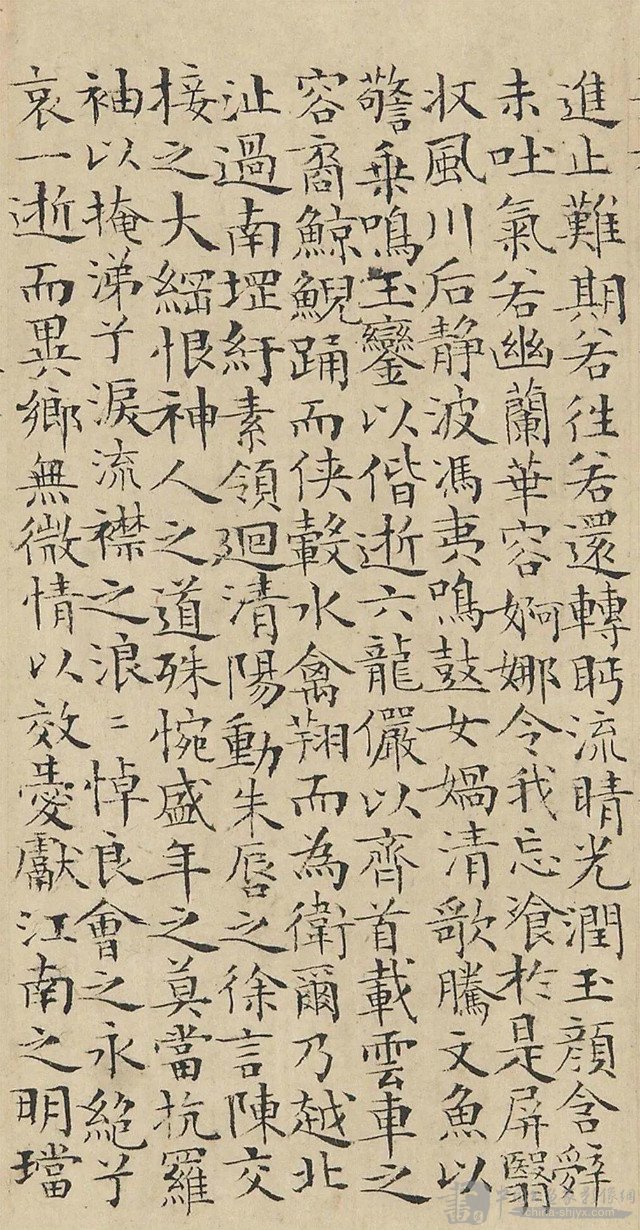 進止難期若往若還轉眄流睛光潤玉顏含辭
未吐氣若幽蘭華容婀娜令我忘飡於是屏翳
收風川后静波馮夷鳴鼓女媧清歌騰文魚以
警乗鳴玉鑾以偕逝六龍儼以齊首載雲車之
容裔鯨鯢踊而侠轂水禽翔而為衛爾乃越北
沚過南堽紆素領迴清陽動朱唇之徐言陳交
接之大綱恨神人之道殊惋盛年之莫當抗羅
袖以掩涕兮淚流襟之浪〻悼良會之永絕兮
哀一逝而異鄉無微情以效愛獻江南之明璫
china-shjyx.com